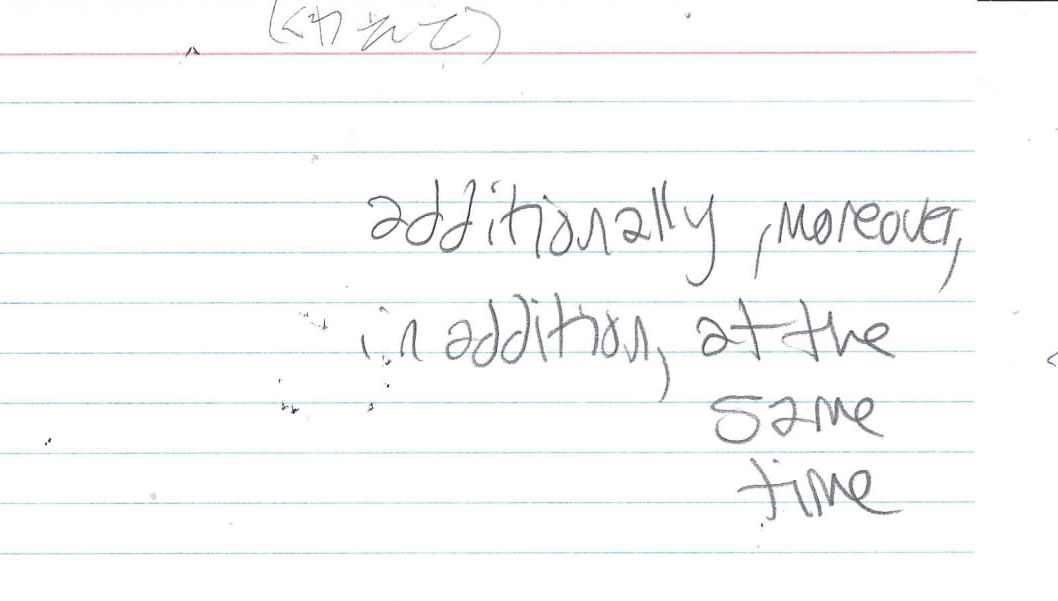 (くわえて)
additionally, moreover,
in addition, at the
same
time